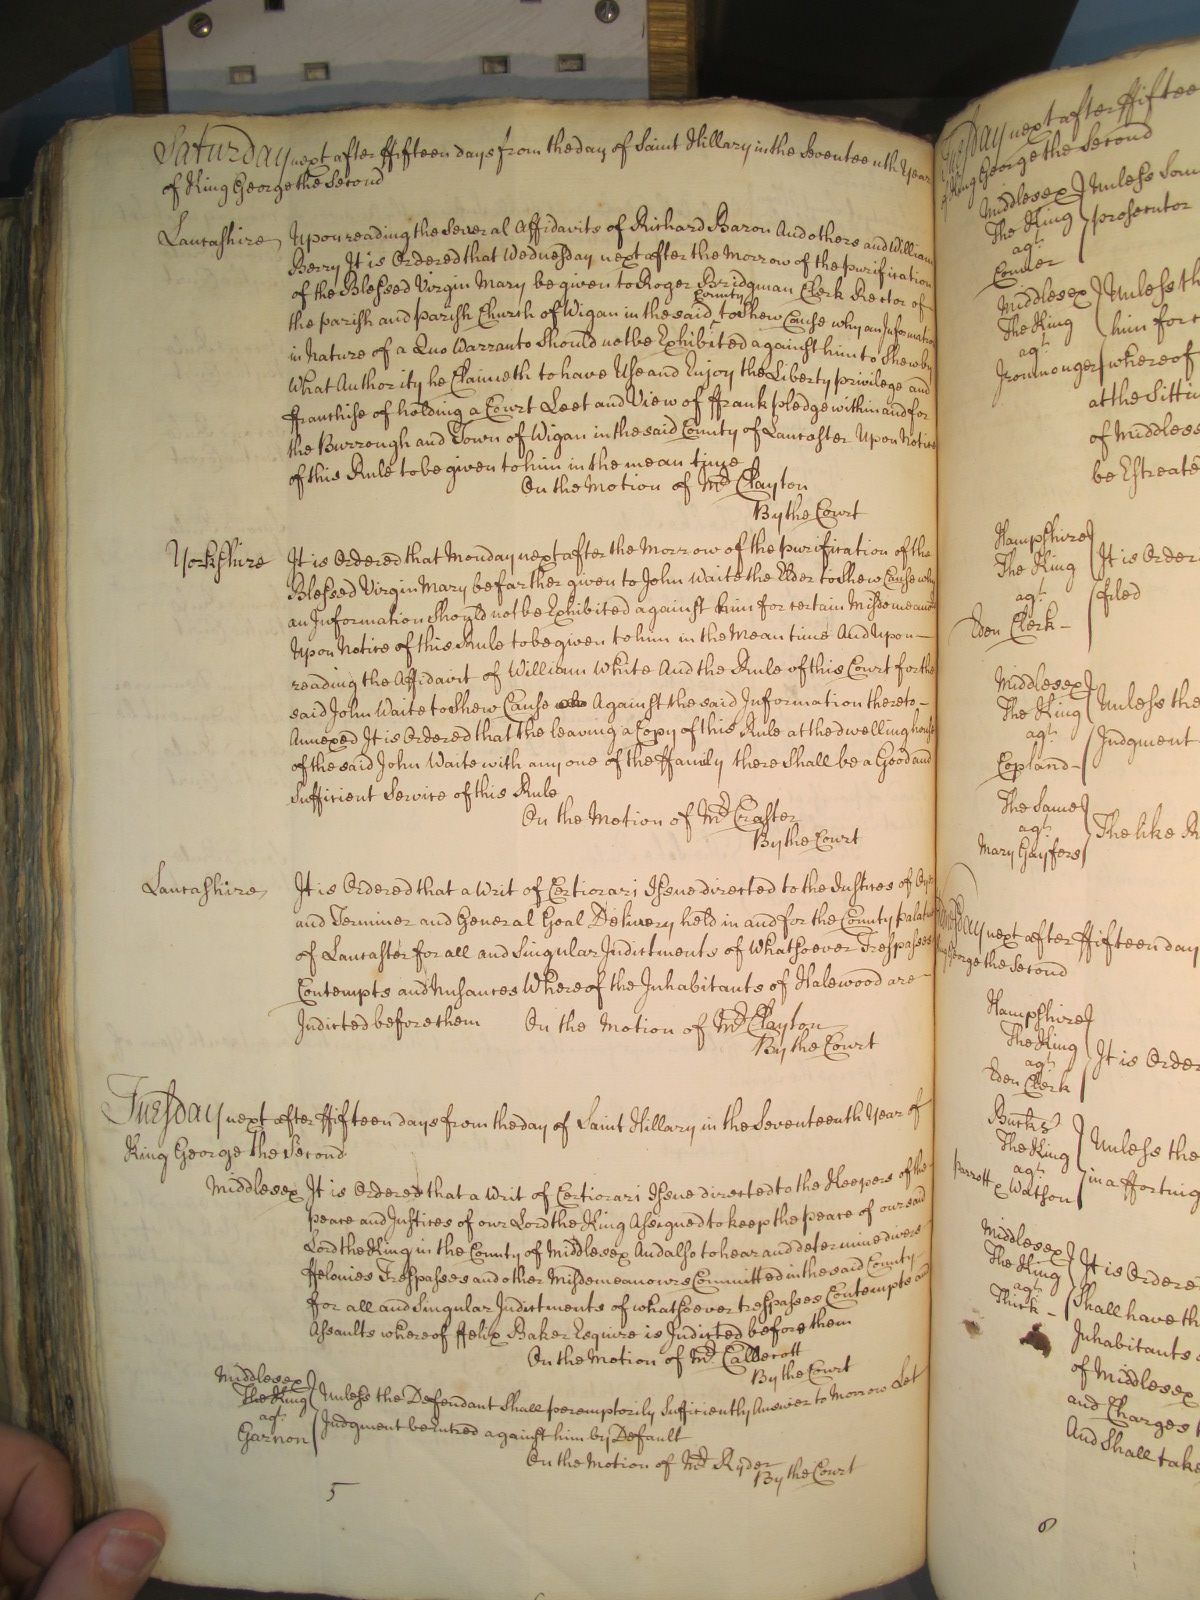 Saturday next after ffifteen days from the day of Saint Hillary in the Seventeenth Year
of King George the Second
Lancashire Upon reading the Several Affidavits of Richard Baron And others and William
Berry It is Ordered that Wednesday next after the Morrow of the purification
of the Blessed Virgin Mary be given to Roger Bridgman Clerk Rector of
the parish and parish Church of Wigan in the said County to Shew Cause why an Informatio
in Nature of a Quo Warranto Should not be Exhibited against him to Shew by
What Authority he Claimeth to have Use and Enjoy the Liberty privilege and
ffranchise of holding a Court Leet and View of ffrank pledge within and for
the Burrough and Town of Wigan in the said County of Lancaster Upon Notice
of this Rule to be given to him in the mean time
On the Motion of Mr Clayton
By the Court
Yorkshire It is Ordered that Monday next after the Morrow of the purification of the
Blessed Virgin Mary be farther given to John Waite the Elder to Shew Cause why
an Information Should not be Exhibited against him for certain Misdemeano
Upon Notice of this Rule to be given to him in the Mean time And Upon
reading the Affidavit of William White And the Rule of this Court for the
said John Waite to Shew Cause Against the said Information thereto
Annexed It is Ordered that the leaving a Copy of this Rule at the dwelling house
of the said John Waite with any one of the ffamily there Shall be a Good and
Sufficient Service of this Rule
On the Motion of Mr Craster
By the Court
Lancashire It is Ordered that a Writ of Certiorari Issue directed to the Justices of Oyer
and Terminer and General Goal Delivery held in and for the County palatin
of Lancaster for all and Singular Indictments of Whatsoever Trespasses
Contempts and Nusances Whereof the Inhabitants of Halewood are
Indicted before them On the Motion of Mr Clayton
By the Court
Tuesday next after ffifteen days from the day of Saint Hillary in the Seventeenth Year of
King George the Second
Middlesex It is Ordered that a Writ of Certiorari Issue directed to the Keepers of the
peace and Justices of our Lord the King Assigned to keep the peace of our said
Lord the King in the County of Middlesex And also to hear and determine divers
ffelonies Trespasses and other Misdemeanours Committed in the said County
for all and Singular Indictments of whatsoever trespasses Contempts and
Assaults whereof ffelix Baker Esquire is Indicted before them
On the Motion of Mr Caldecott
By the Court
Middlesex
The King Unless the Defendant Shall peremptorily Sufficiently Answer to Morrow Let
agt Judgment be Entred against him by Default
Garnon
On the Motion of Mr Ryder
By the Court
5
Tuesday next after ffiftee
of King George the Second
Middlesex Unless Som
The King prosecutor
agt
Middlesex Unless th
The King him for
agt
Ironmonger whereof
at the Sitti
of Middles
be Estreate
Hampshire
The King It is Order
agt filed
Eden Clerk
Middlesex Unless the
The King
agt Judgment
Copland
The Same
agt The like R
Mary Gayfere
day next after ffifteen day
George the Second
Hampshire
The King It is Order
agt
Eden Clerk
Bucks
The King Unless the
agt in a ffortnig
Parrott & Watson
Middlesex
The King It is Ordere
agt Shall have th
Thirk
Inhabitants
of Middlesex
and Charges
And Shall take
6